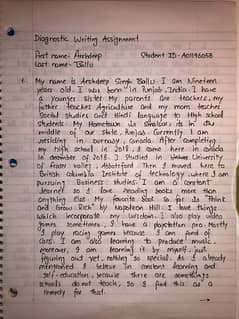 Diagnostic Writing Assignment
First name: Arshdeep Student ID - A01196058
Last name - Ballu
1. My name is Arshdeep Singh Ballu. I am Nineteen
years old. I was born in Punjab, India. I have
a younger sister. My parents are teachers, my
father teaches Agriculture and my mom teaches
Social studies and Hindi language to High school
students. My Hometown is in the
middle of our state, Punjab. Currently I am
residing in Burnaby, Canada. After completing
my high school in 2018, I came here in Canada
in december of 2018. I studied in University
of Fraser valley, Abbotsford. Then I moved here to
British Columbia Institute of technology where I am
pursuing Business studies. I am a constant
learner so I love reading books more than
anything else. My favorite book so far is "Think
and Grow Rich" by Napoleon Hill. I love things
which incorporate my wisdom. I also play video
games sometimes, I have a playstation pro. Mostly
I play racing games because I am fond of
cars. I am also learning to produce music,
moreover, I am learning it by myself, just
figuring out yet, nothing so special. As I already
mentioned I believe in constant learning and
self-education, because there are some things
schools do not teach, so I find this as a
remedy for that.